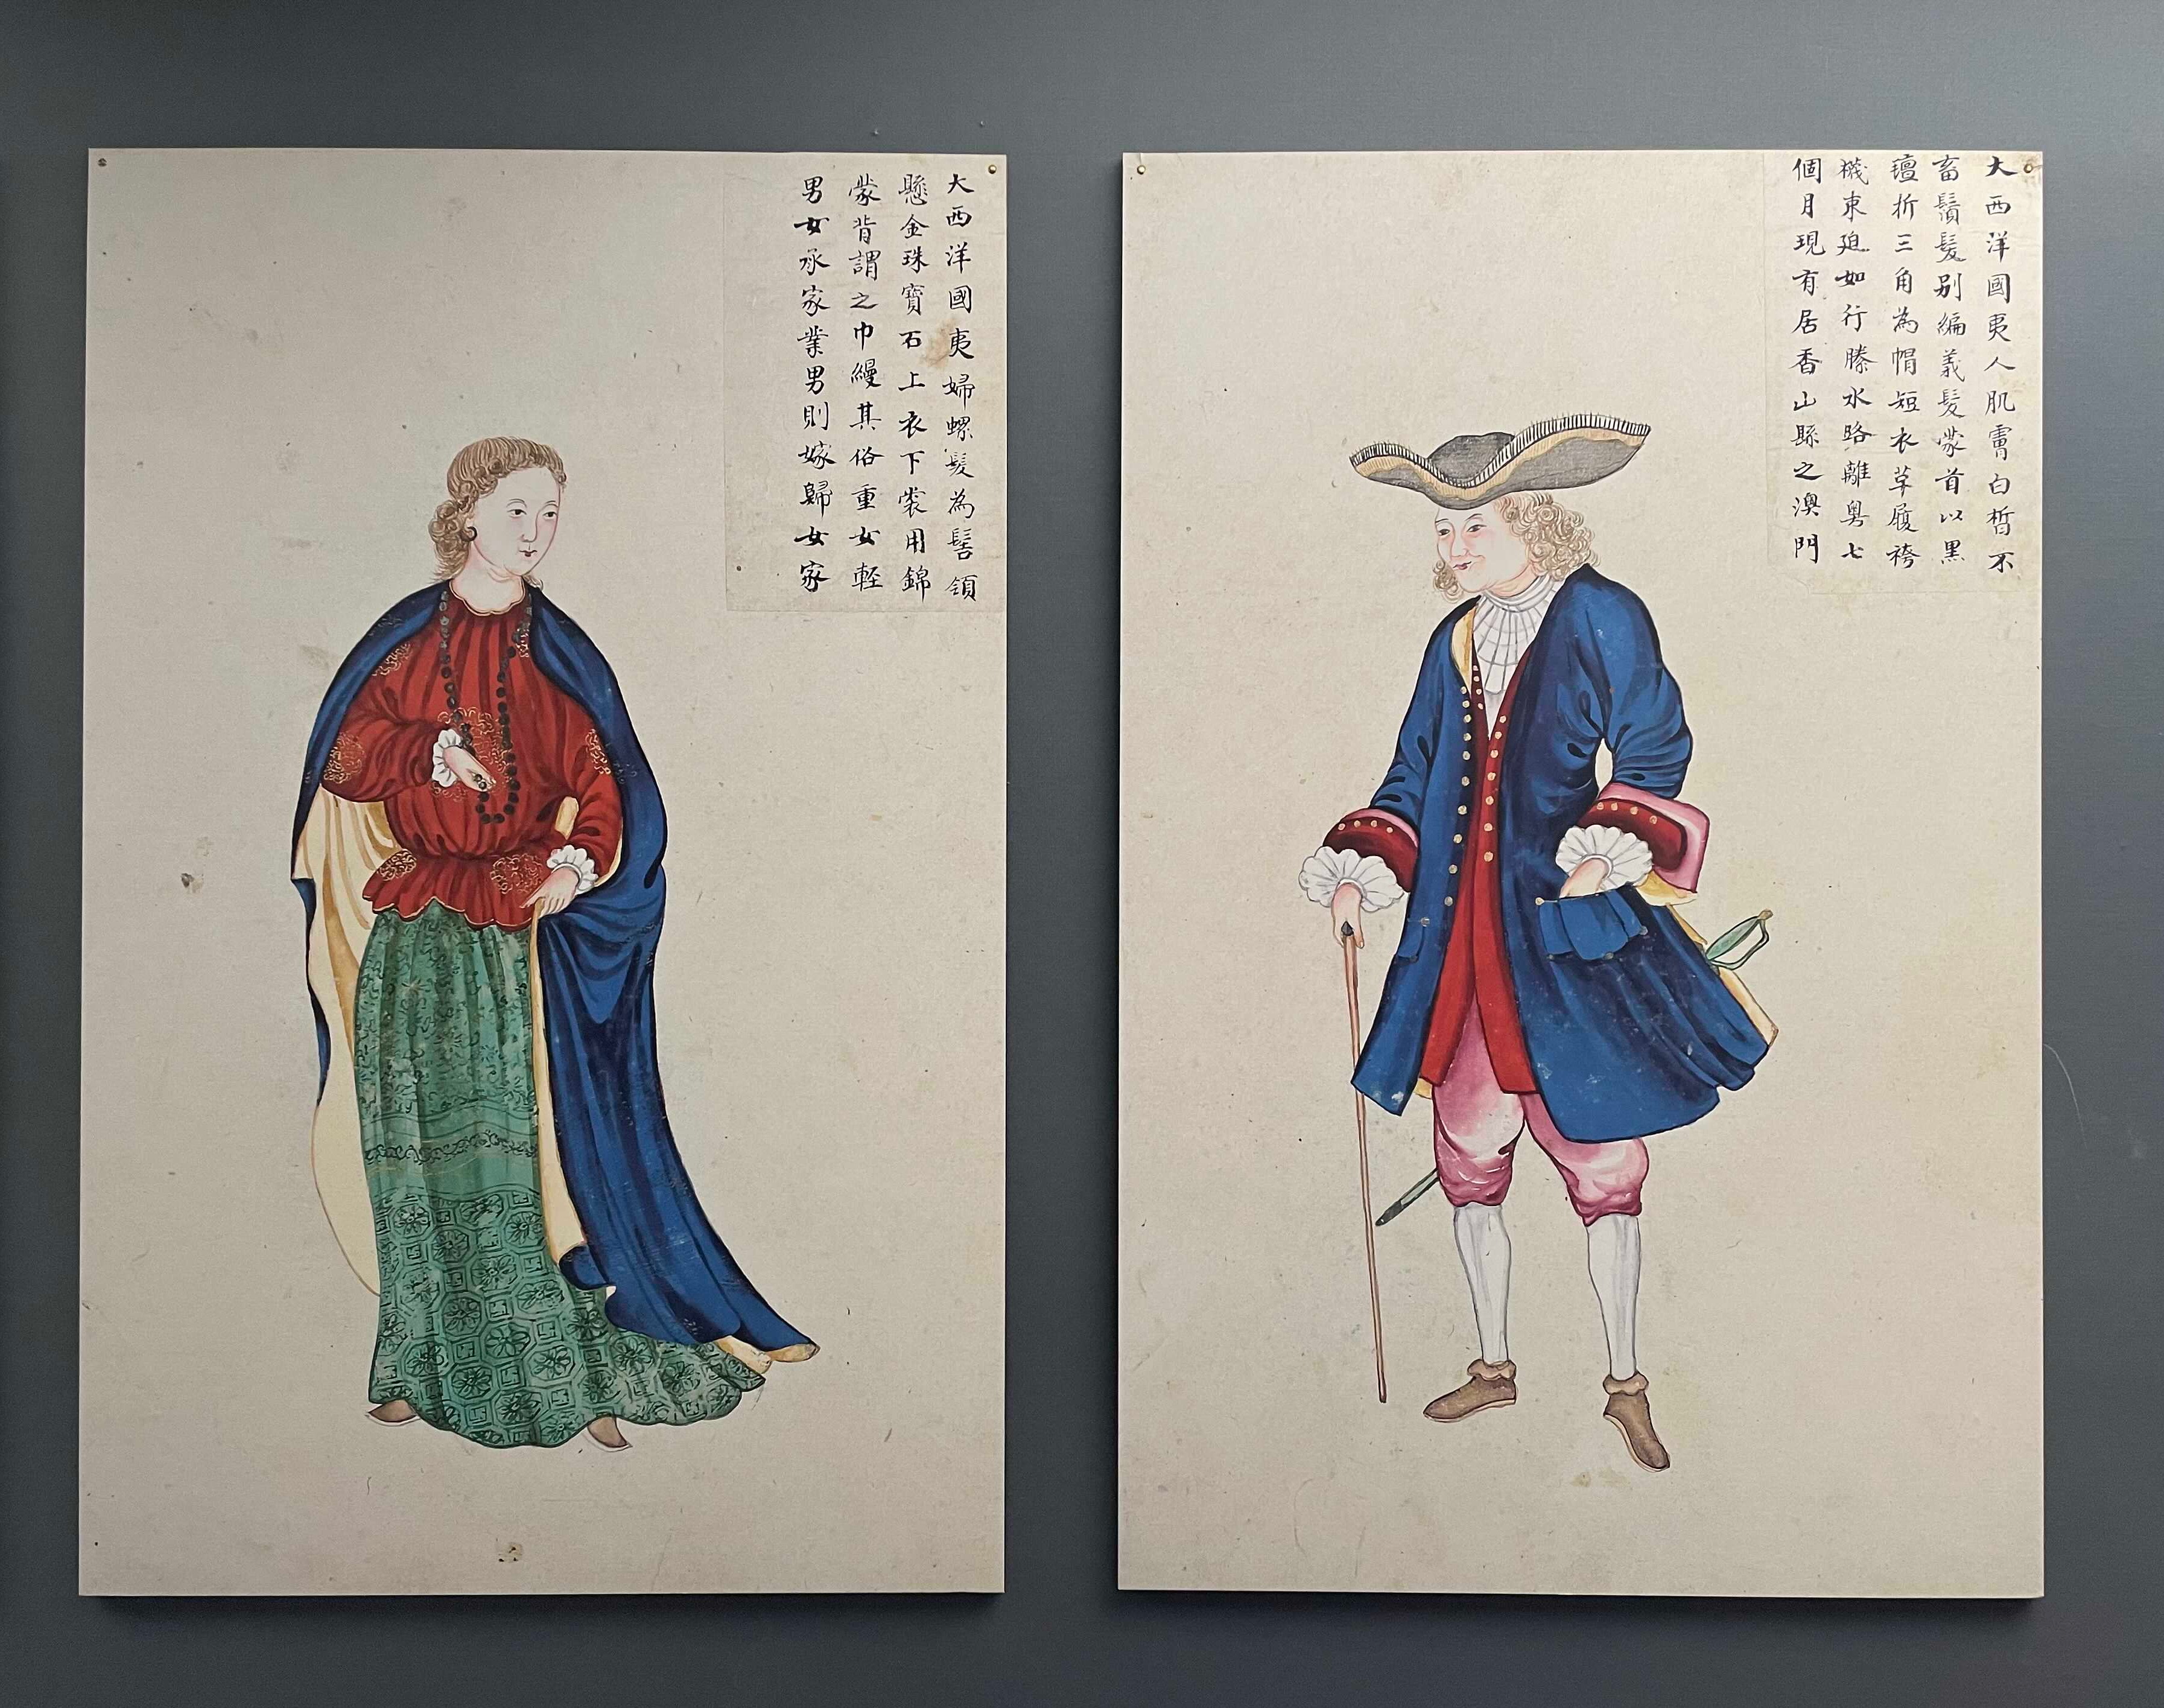 大西洋國夷婦螺髮為髻領
懸金珠寶石上衣下裳用錦
蒙背謂之巾縵其俗重女輕
男女承家業男則嫁歸女家
大西洋國夷人肌膚白晳不
畜鬚髮别編義髮蒙首以黑
氊折三角為帽短衣革履袴
襪束廹如行縢水路離粤七
個月現有居香山縣之澳門